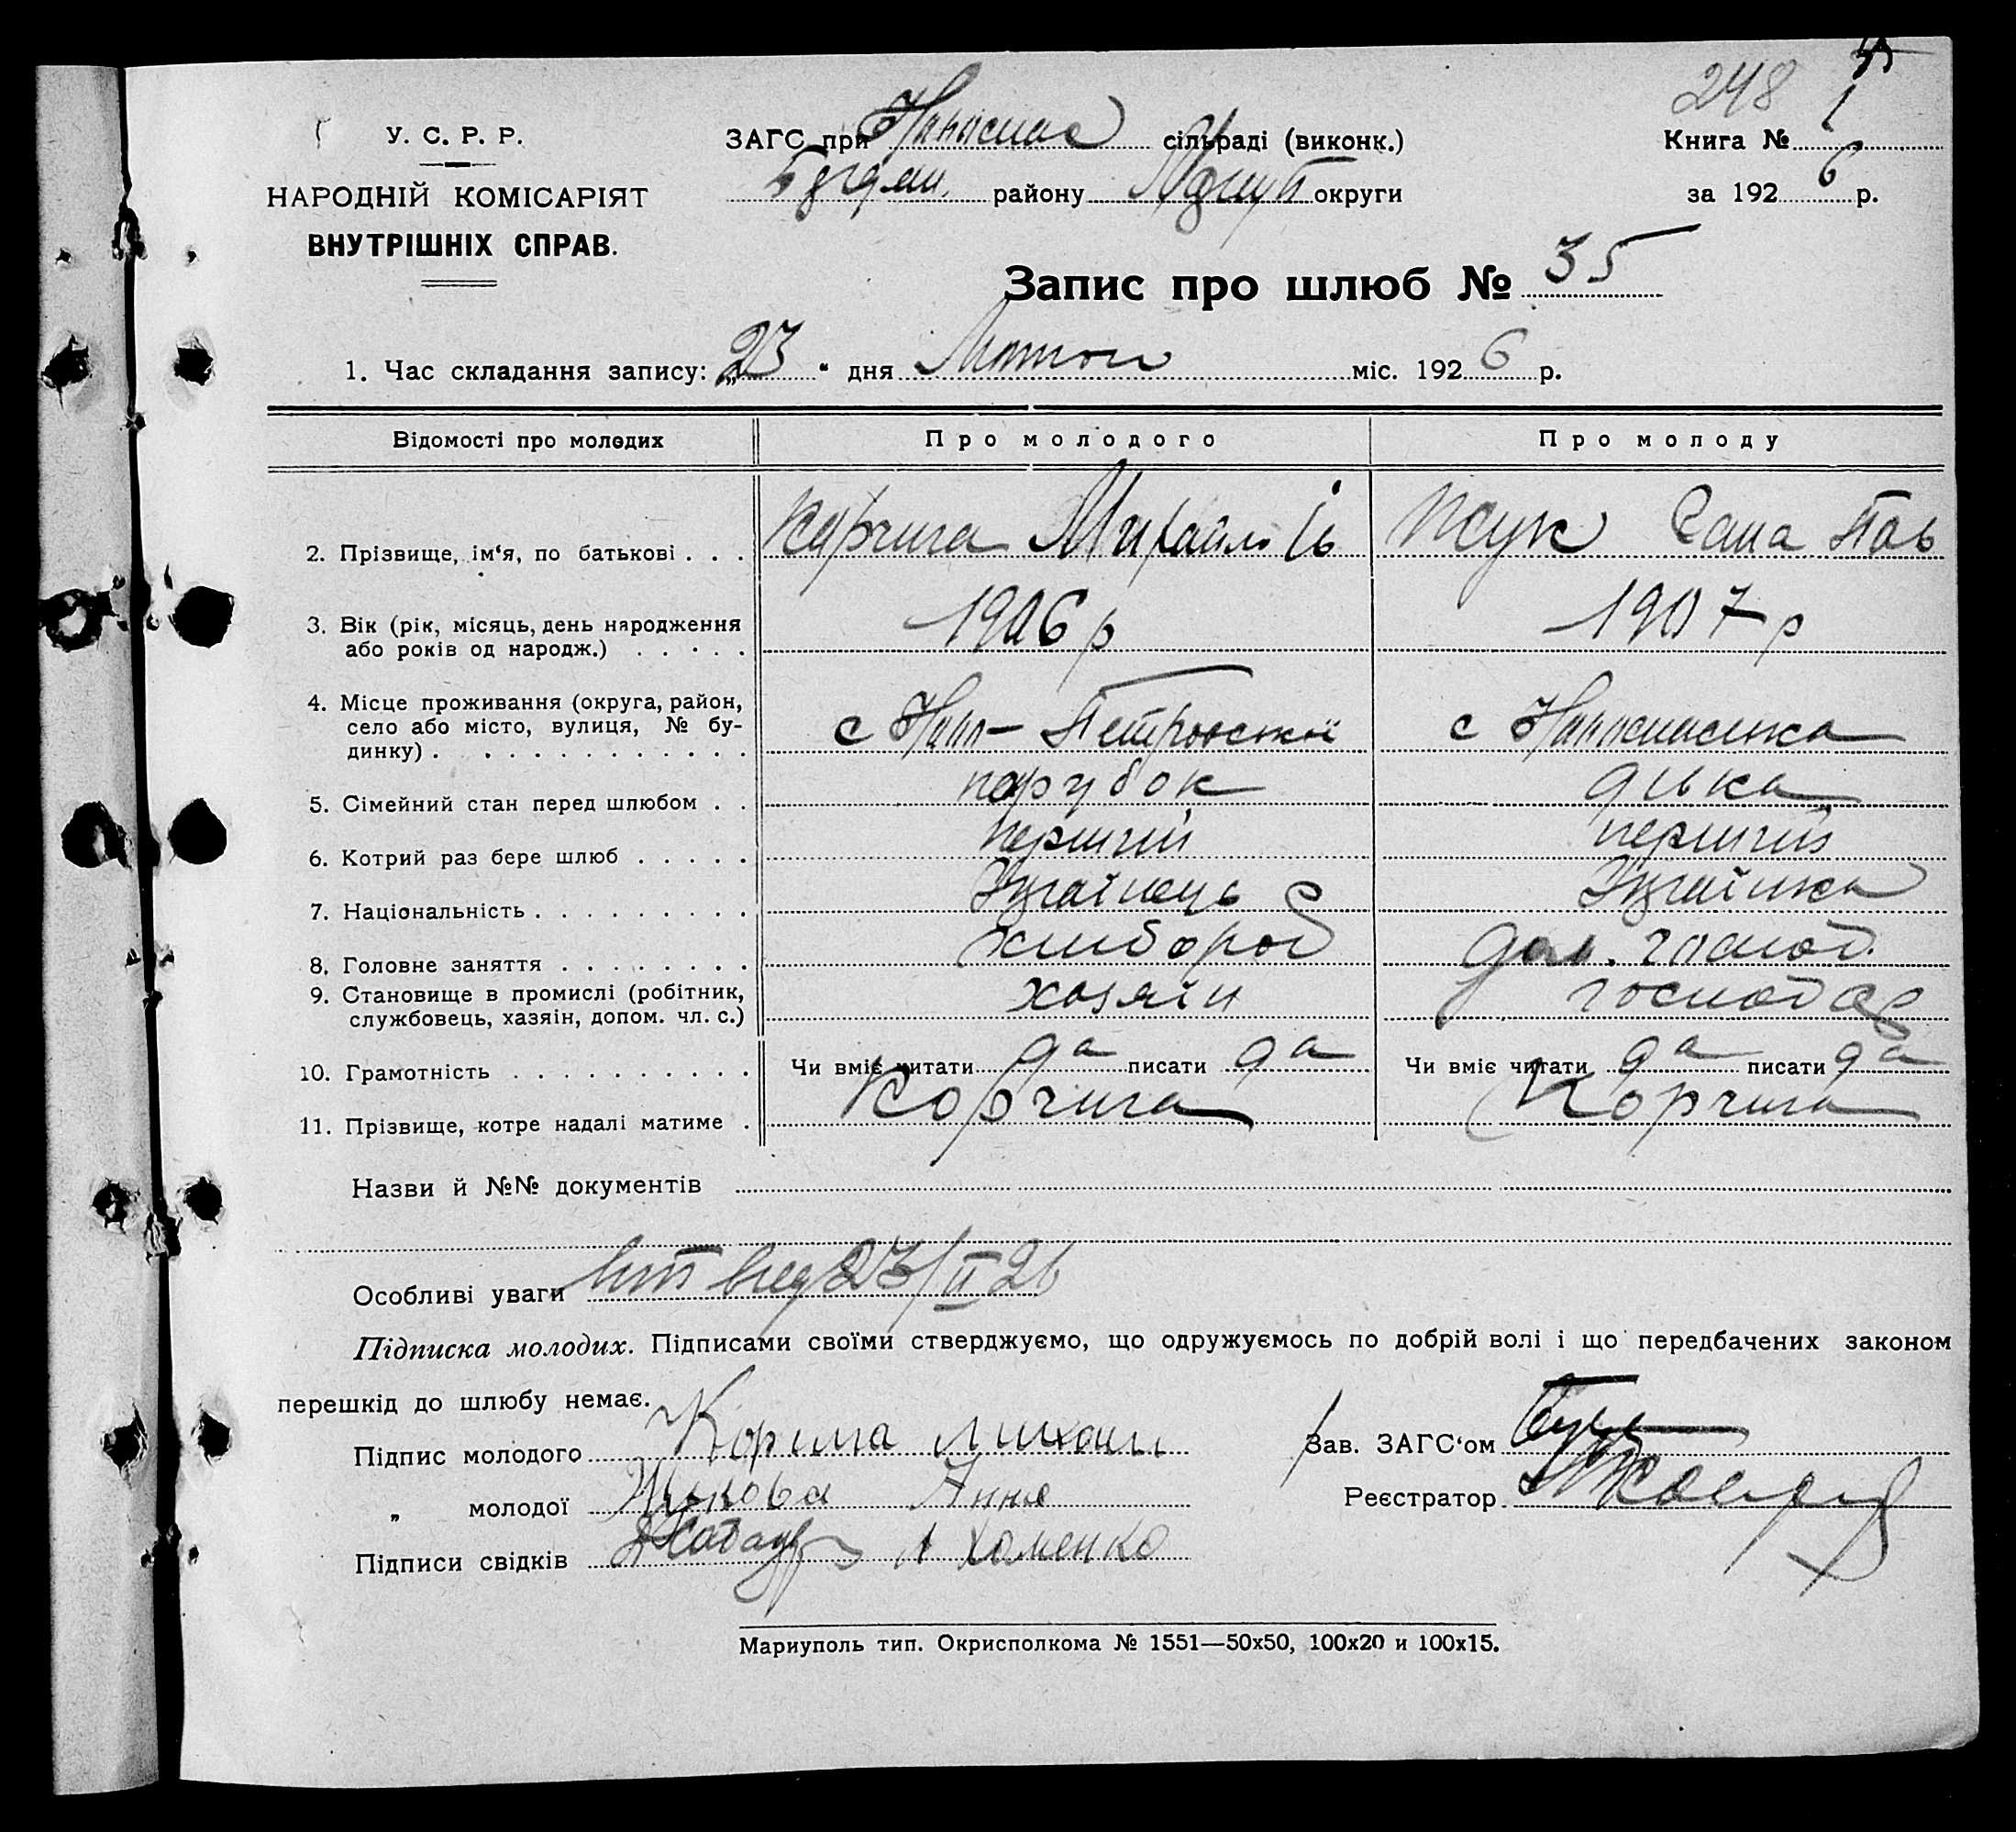 248
У. С. Р. Р.
НАРОДНІЙ КОМІСАРІЯТ
ВНУТРІШНІХ СПРАВ.
ЗАГС при Новоспас сільраді (виконк.)
району округи
Книга № 1
за 1926 р.
Запис про шлюб № 35
1. Час складання запису: „23“ дня Лютого міс. 1926 р.
Відомості про молодих Про молодого Про молоду
2. Прізвище, ім‘я, по батькові . . . Корчига Михайло Ів Жук Гана Пав
3. Вік (рік, місяць, день народження або років од народж.) . . . . . 1906 р 1907 р
4. Місце проживання (округа, район, село або місто, вулиця, № будинку) . . . . . . . . . . . . с Ново-Петровской с Новоспасовка
5. Сімейний стан перед шлюбом . . парубок дівка
6. Котрий раз бере шлюб . . . . . перший перший
7. Національність . . . . . . . . . Украінець Украінка
8. Головне заняття . . . . . . . . хлибороб дом. господ.
9. Становище в промислі (робітник, службовець, хазяін, допом. чл. с.) хозяін господар
10. Грамотність . . . . . . . . . . Чи вміє читати да писати да Чи вміє читати да писати да
11. Прізвище, котре надалі матиме . Корчига Корчига
Назви й №№ документів
Особливі уваги 23/II 26
Підписка молодих. Підписами своїми стверджуємо, що одружуємось по добрій волі і що передбачених законом
перешкід до шлюбу немає.
Підпис молодого Михаил
„ молодої Жукова Анна
Підписи свідків Хоменко
Зав. ЗАГС‘ом
Реєстратор
Мариуполь тип. Окрисполкома № 1551—50х50, 100х20 и 100х15.